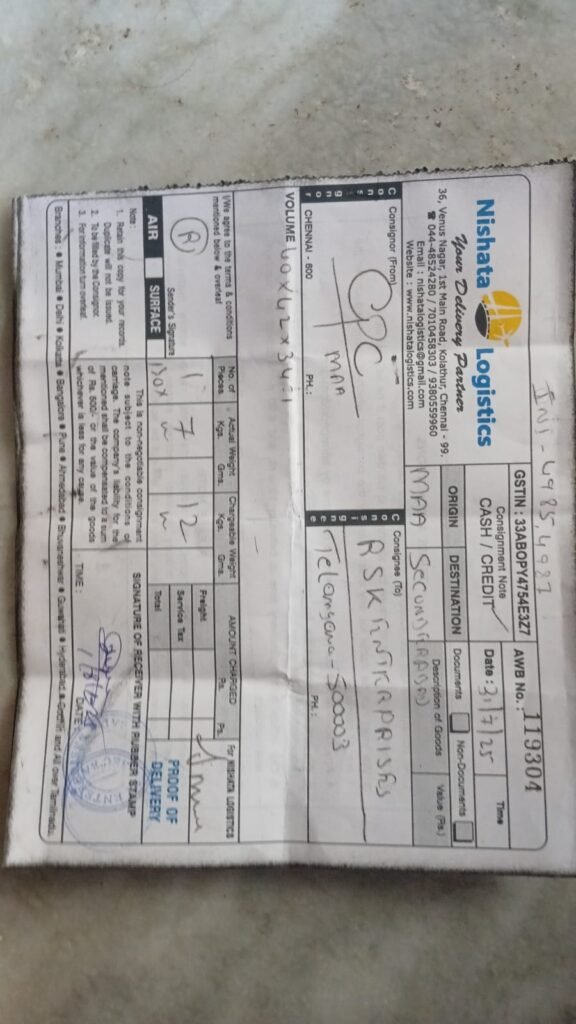 INVI-4985,4987
Nishata Logistics
Your Delivery Partner
36, Venus Nagar, 1st Main Road, Kolathur, Chennai - 99.
☎ 044-48524280 / 7010458303 / 9380559960
Email : nishatalogistics@gmail.com
Website : www.nishatalogistics.com
GSTIN : 33ABOPY4754E3Z7
AWB No.: 119304
Consignment Note
CASH / CREDIT
Date : 31/7/25
Time
ORIGIN
DESTINATION
Description of Goods
Value (Rs.)
Documents
Non-Documents
MAA
Consignor
Consignor (From)
CPC
MAA
CHENNAI - 600
PH.:
Consignee
Consignee (To)
RSK ENTERPRISES
Telangana-500003
PH.:
VOLUME 40x42x34=1
I/We agree to the terms & conditions
mentioned below & overleaf
Sender's Signature
No. of
Pieces
Actual Weight
Kgs. Gms.
Chargeable Weight
Kgs. Gms.
AMOUNT CHARGED
Rs. Ps.
For NISHATA LOGISTICS
1
Box
7
12
Freight
Service Tax
Total
AIR
SURFACE
PROOF OF
DELIVERY
Note :
1. Retain this copy for your records.
Duplicate will not be issued.
2. To be filled by the Consignor.
3. For information turn overleaf.
This is non-negotiable consignment
note subject to the conditions of
carriage. The company's liability for the
mentioned shall be compensated to a sum
of Rs 500/- or the value of the goods
whichever is less for any cause.
SIGNATURE OF RECEIVER WITH RUBBER STAMP
TIME :
DATE
Branches : ● Mumbai ● Delhi ● Kolkatta ● Bangalore ● Pune ● Ahmedabad ● Bhuvaneshwar ● Guwahati ● Hyderabad ● Cochin and All over Tamilnadu